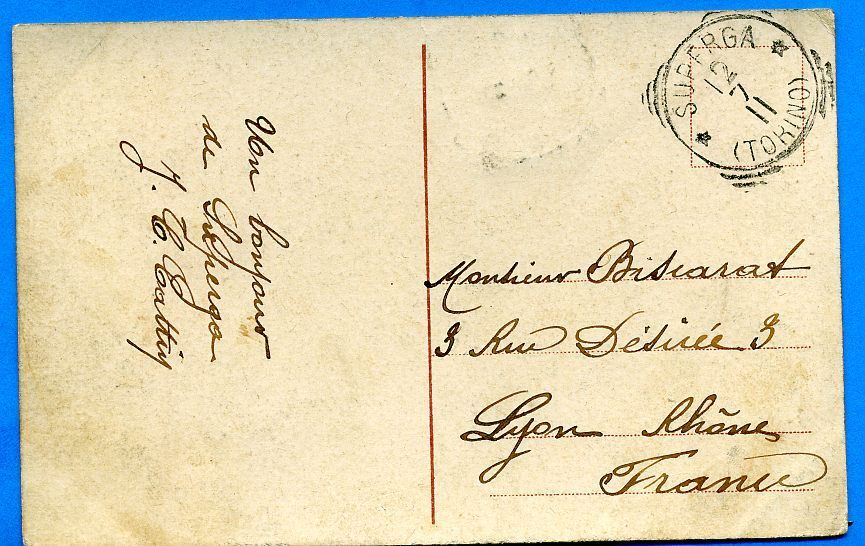 SUPERGA
(TORINO)
12
7
11
Un bonjour
de Superga
J. C.
Monsieur Biscarat
3 Rue Désirée 3
Lyon Rhône
France